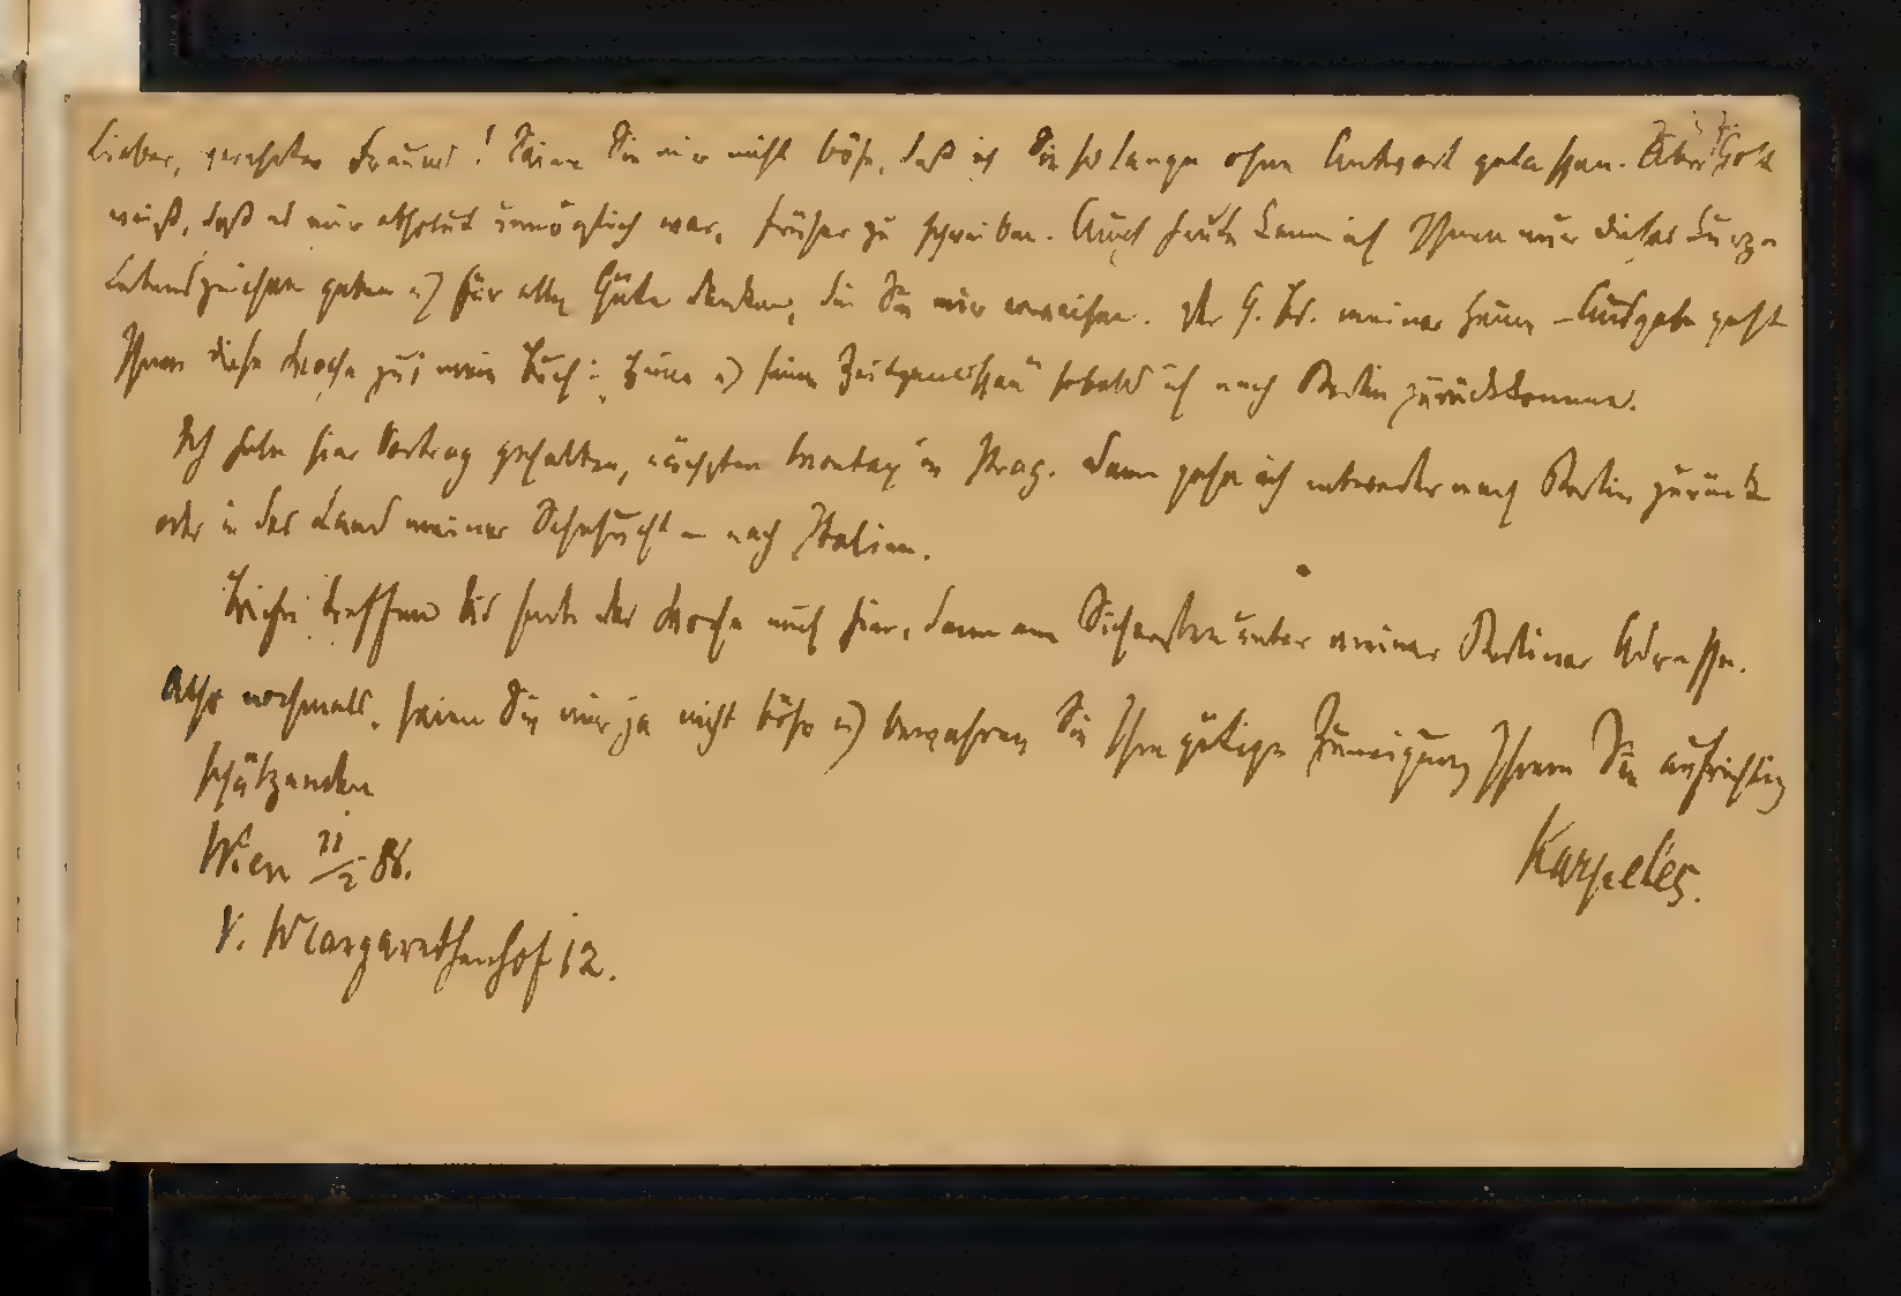 Lieber, verehrter Freund! Seien Sie mir nicht böse, daß ich Sie so lange ohne Antwort gelassen. Aber Gott
weiß, daß es mir absolut unmöglich war, früher zu schreiben. Auch heute kann ich Ihnen nur dieses kurze
Lebenszeichen geben u) für alle Güte danken, die Sie mir erweisen. Der 9. Bd. meiner Heine-Ausgabe geht
Ihnen diese Woche zu; mein Buch: „Heine u) seine Zeitgenossen" sobald ich nach Berlin zurückkomme.
Ich habe hier Vortrag gehalten, nächsten Montag in Prag. Dann gehe ich entweder nach Berlin zurück
oder in das Land meiner Sehnsucht – nach Italien.
Briefe treffen bis Ende der Woche mich hier, dann am Sichersten unter meiner Berliner Adresse.
Also nochmals, seien Sie mir ja nicht böse u) bewahren Sie Ihre gütige Zuneigung Ihrem Sie aufrichtig
schätzenden
Karpeles.
Wien 11/2 88.
V. Margarethenhof 12.